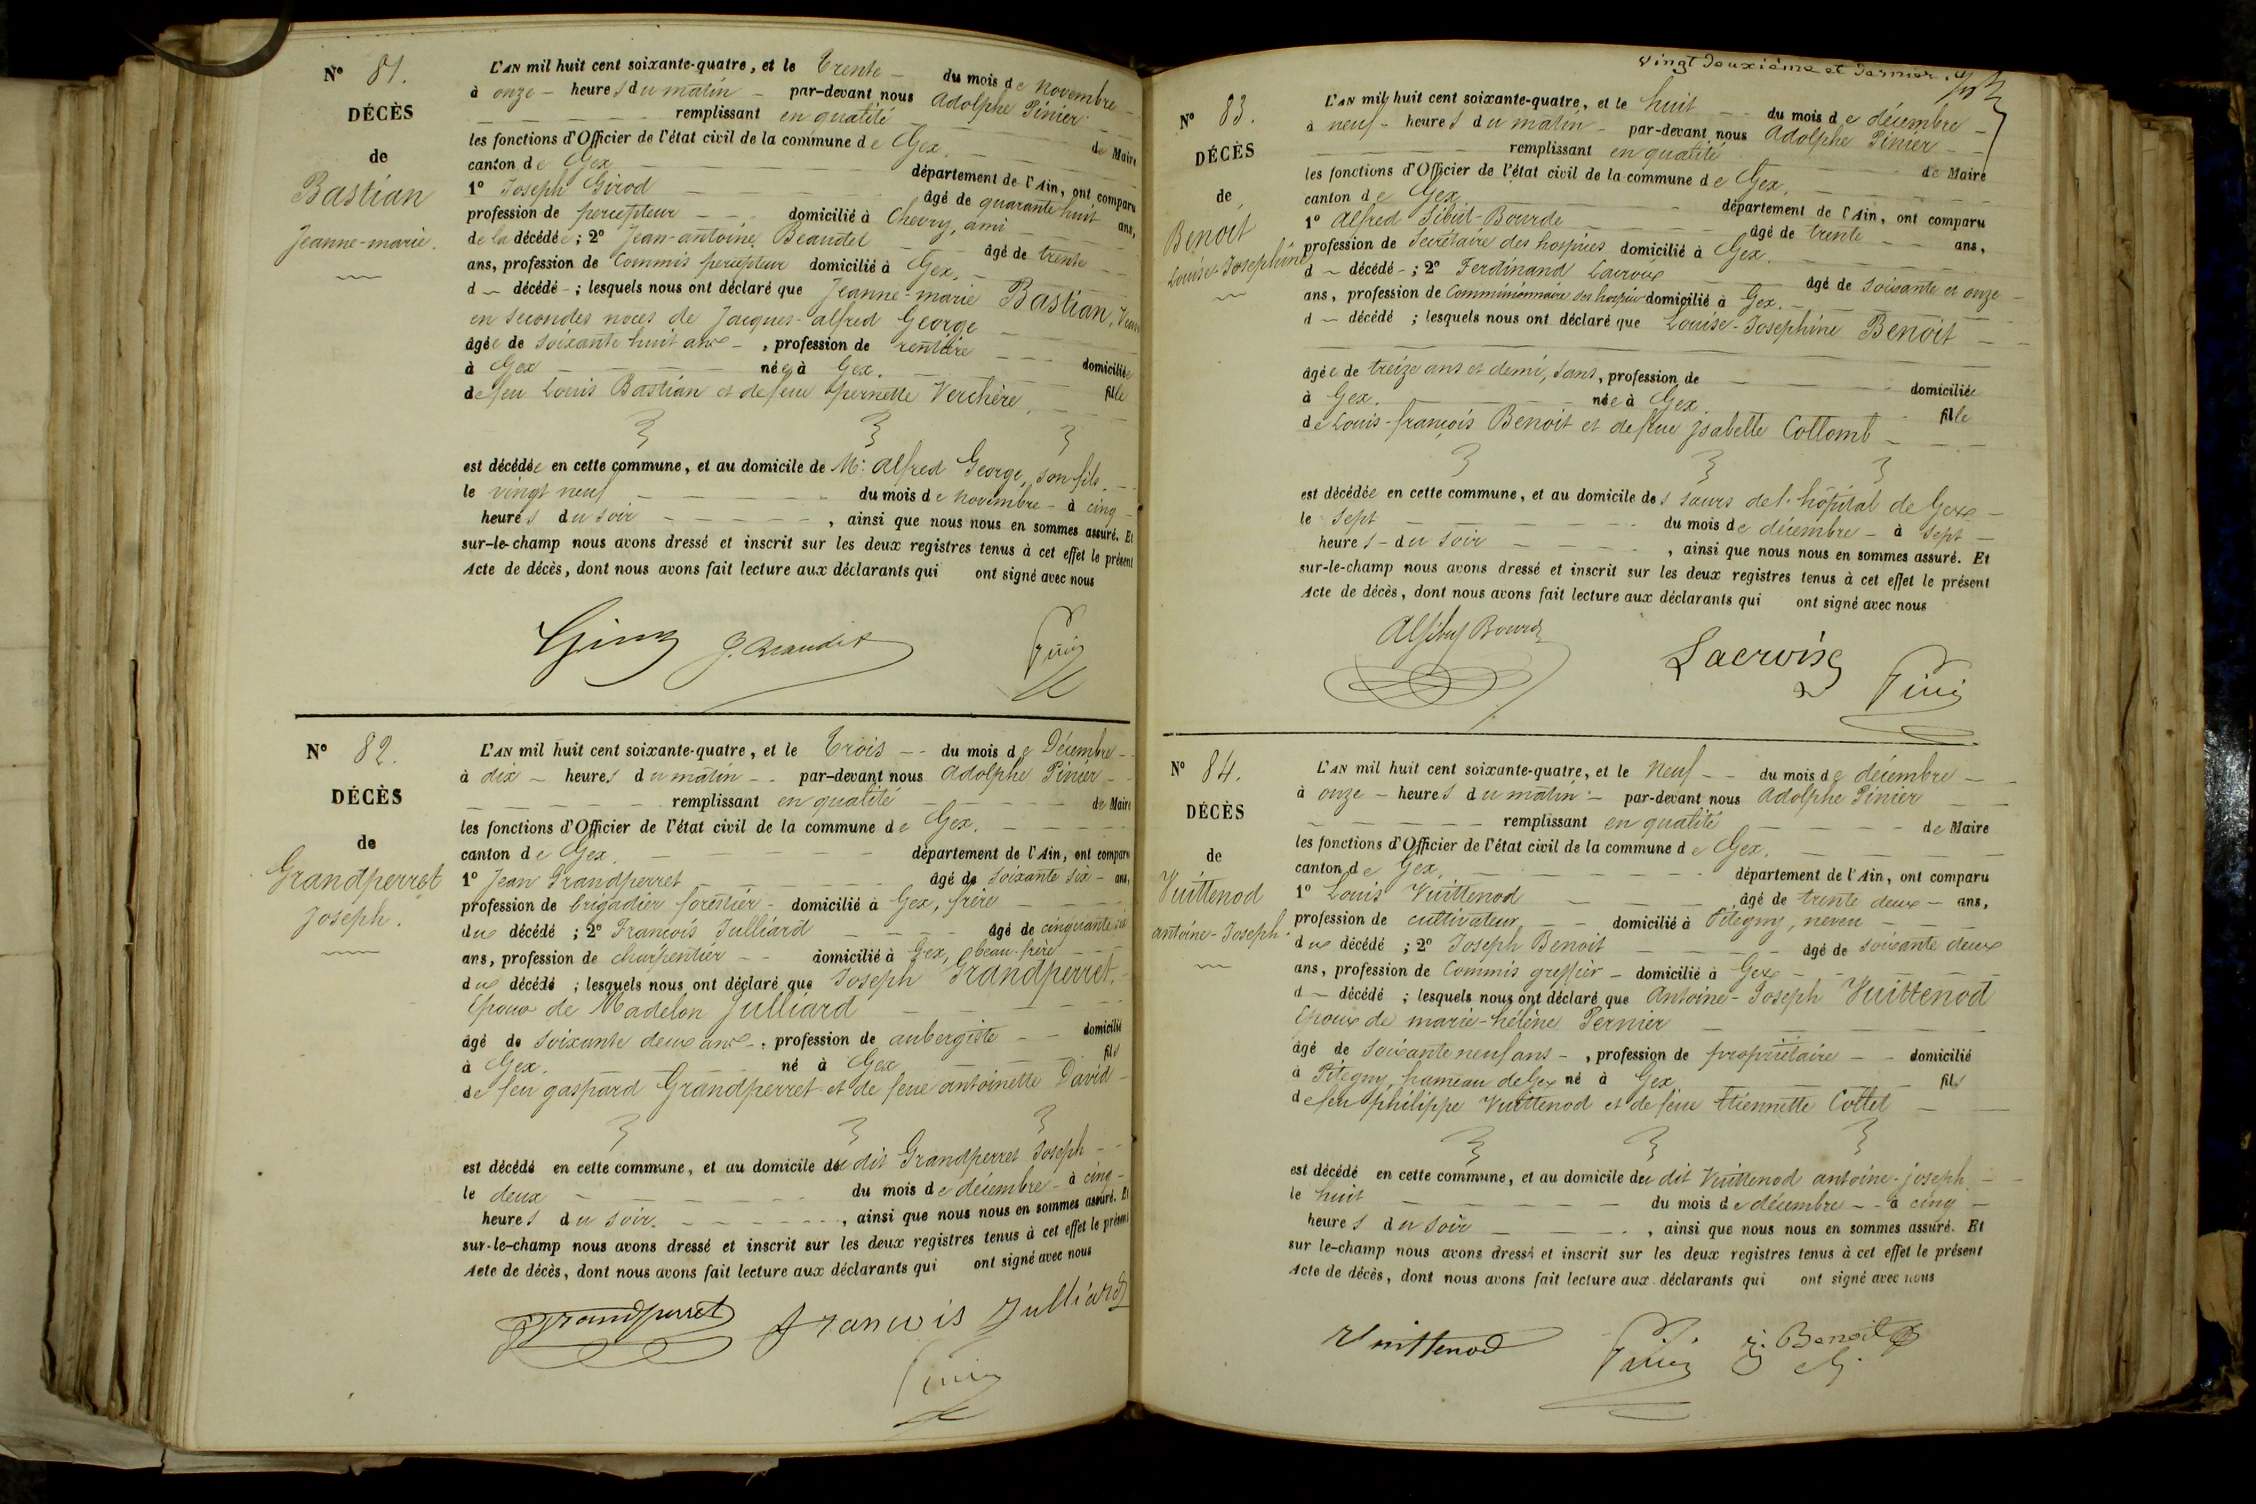 N° 81.
DÉCÈS
de
Bastian
Jeanne-marie.
L'AN mil huit cent soixante-quatre, et le Trente du mois de Novembre
à onze heures du matin par-devant nous Adolphe Pinier
remplissant en qualité de Maire
les fonctions d'Officier de l'état civil de la commune de Gex
canton de Gex département de l'Ain, ont comparu
1° Joseph Girod âgé de quarante huit ans,
profession de percepteur domicilié à Chevry, ami
de la décédée ; 2° Jean-antoine Beaudet âgé de trente
ans, profession de Commis percepteur domicilié à Gex,
d décédé ; lesquels nous ont déclaré que Jeanne-marie Bastian,
en secondes noces de Jacques-alfred George
âgée de soixante huit ans, profession de rentière domiciliée
à Gex née à Gex. fille
de feu Louis Bastian et de feue pernette Verchère.
est décédée en cette commune, et au domicile de Mr. alfred George, son fils.
le vingt neuf du mois de novembre à cinq
heures du soir, ainsi que nous nous en sommes assuré. Et
sur-le-champ nous avons dressé et inscrit sur les deux registres tenus à cet effet le présent
Acte de décès, dont nous avons fait lecture aux déclarants qui ont signé avec nous
N° 82.
DÉCÈS
de
Grandperret
Joseph.
L'AN mil huit cent soixante-quatre, et le Trois du mois de Décembre
à dix heures du matin par-devant nous Adolphe Pinier
remplissant en qualité de Maire
les fonctions d'Officier de l'état civil de la commune de Gex.
canton de Gex. département de l'Ain, ont comparu
1° Jean Grandperret âgé de soixante six ans,
profession de brigadier forestier domicilié à Gex, frère
du décédé ; 2° François Julliard âgé de cinquante six
ans, profession de charpentier domicilié à Gex, beau-frère
du décédé ; lesquels nous ont déclaré que Joseph Grandperret,
Epoux de Madelon Julliard
âgé de soixante deux ans, profession de aubergiste domicilié
à Gex. né à Gex fils
de feu gaspard Grandperret et de feue antoinette David
est décédé en cette commune, et au domicile du dit Grandperret Joseph
le deux du mois de décembre à cinq
heures du soir., ainsi que nous nous en sommes assuré. Et
sur-le-champ nous avons dressé et inscrit sur les deux registres tenus à cet effet le présent
Acte de décès, dont nous avons fait lecture aux déclarants qui ont signé avec nous
Grandperret François Julliard
Vingt Deuxième et Dernier.
N° 83.
DÉCÈS
de
Benoit
Louise-Josephine
L'AN mil huit cent soixante-quatre, et le huit du mois de décembre
à neuf heures du matin par-devant nous Adolphe Pinier
remplissant en qualité de Maire
les fonctions d'Officier de l'état civil de la commune de Gex.
canton de Gex département de l'Ain, ont comparu
1° Alfred Sibuet-Bourde âgé de trente ans,
profession de Secrétaire des hospices domicilié à Gex.
d décédé ; 2° Ferdinand Lacroix âgé de soixante et onze
ans, profession de Commissionnaire des hospices domicilié à Gex.
d décédé ; lesquels nous ont déclaré que Louise-Josephine Benoit
âgée de treize ans et demi, sans, profession de domiciliée
à Gex. née à Gex. fille
de Louis-françois Benoit et de feue Isabelle Collomb
est décédée en cette commune, et au domicile des sœurs de l'hôpital de Gex
le sept du mois de décembre à sept
heures du soir, ainsi que nous nous en sommes assuré. Et
sur-le-champ nous avons dressé et inscrit sur les deux registres tenus à cet effet le présent
Acte de décès, dont nous avons fait lecture aux déclarants qui ont signé avec nous
Lacroix
N° 84.
DÉCÈS
de
Vuittenod
antoine-Joseph
L'AN mil huit cent soixante-quatre, et le Neuf du mois de décembre
à onze heures du matin par-devant nous Adolphe Pinier
remplissant en qualité de Maire
les fonctions d'Officier de l'état civil de la commune de Gex.
canton de Gex. département de l'Ain, ont comparu
1° Louis Vuittenod âgé de trente deux ans,
profession de cultivateur domicilié à Pitegny, neveu
du décédé ; 2° Joseph Benoit âgé de soixante deux
ans, profession de Commis greffier domicilié à Gex
d décédé ; lesquels nous ont déclaré que Antoine-Joseph Vuittenod
Epoux de marie-hélène Pernier
âgé de soixante neuf ans, profession de propriétaire domicilié
à Pitegny, hameau de Gex né à Gex fils
de feu philippe Vuittenod et de feue Etiennette Cottet
est décédé en cette commune, et au domicile du dit Vuittenod antoine-joseph.
le huit du mois de décembre à cinq
heures du soir, ainsi que nous nous en sommes assuré. Et
sur-le-champ nous avons dressé et inscrit sur les deux registres tenus à cet effet le présent
Acte de décès, dont nous avons fait lecture aux déclarants qui ont signé avec nous
Vuittenod J. Benoit